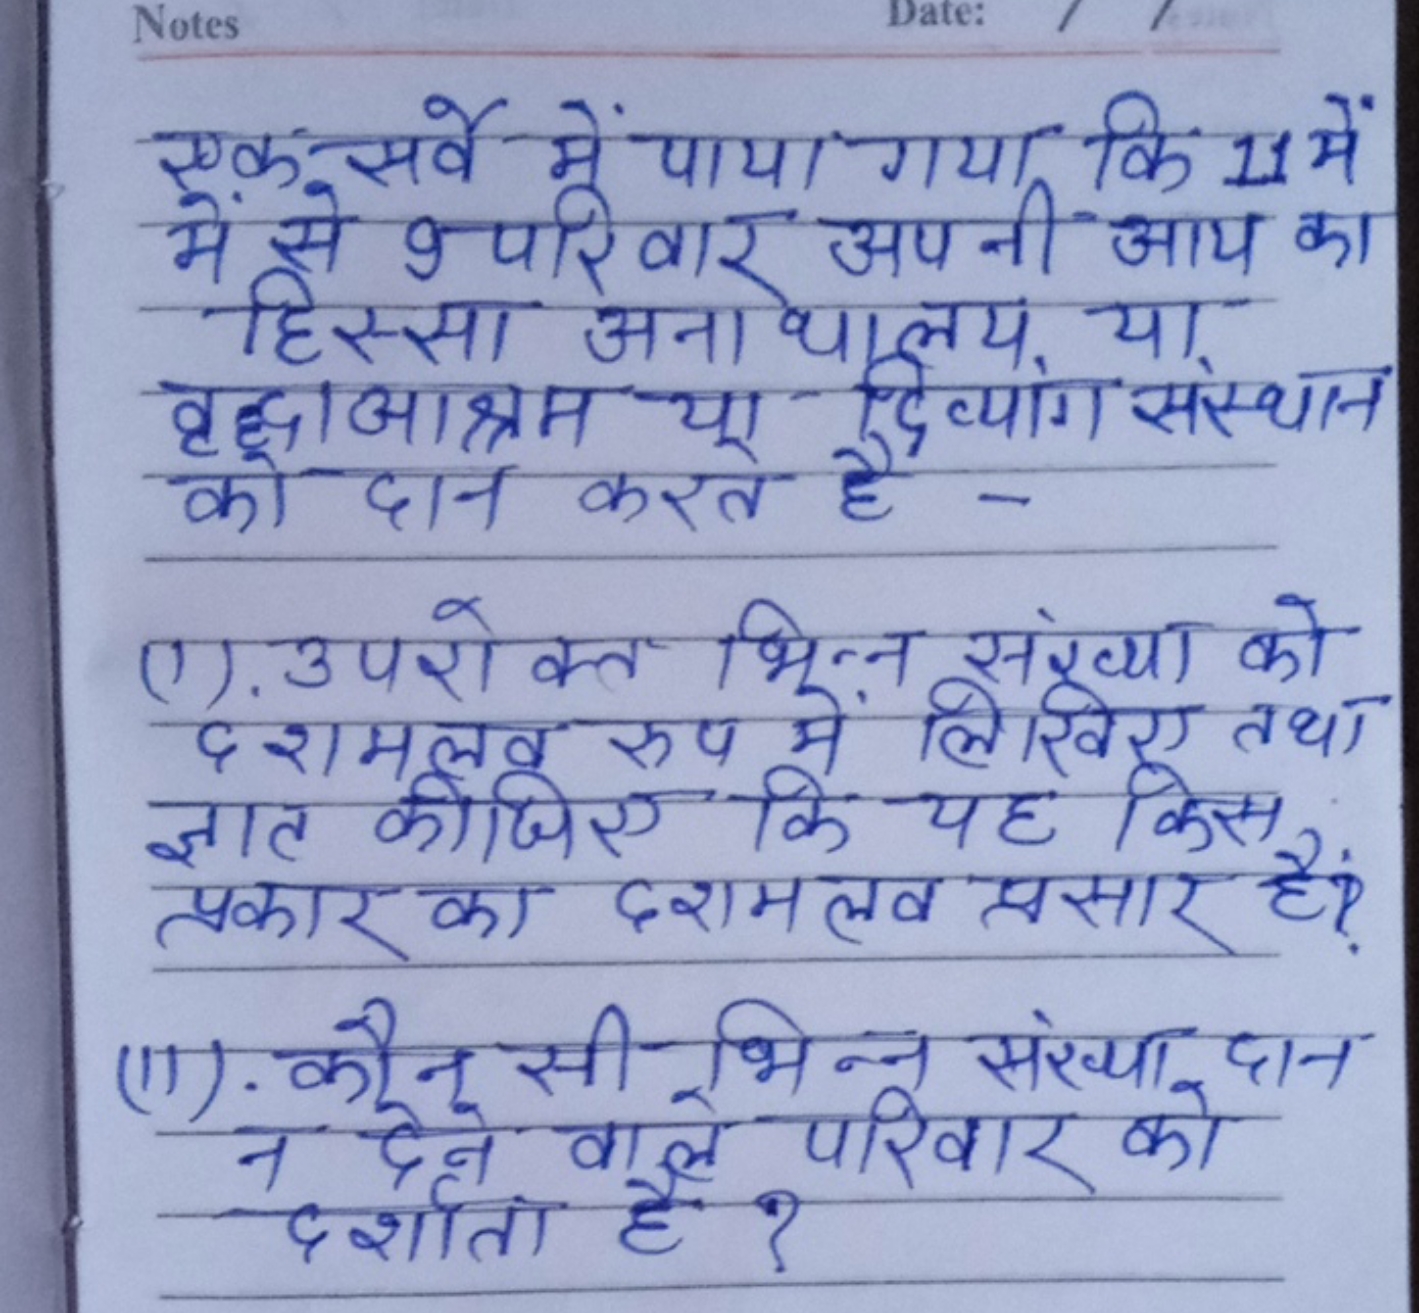 Notes Date: / /
एक सर्वे में पाया गया कि 11 में
में से 9 परिवार अपनी आय का
हिस्सा अनाथालय या
वृद्धाआश्रम या दिव्यांग संस्थान
को दान करते है -
(i). उपरोक्त भिन्न संख्या को
दशमलव रुप में लिखिए तथा
ज्ञात कीजिए कि यह किस
प्रकार का दशमलव प्रसार हैं?
(ii). कौन सी भिन्न संख्या दान
न देने वाले परिवार को
दर्शाता है ?